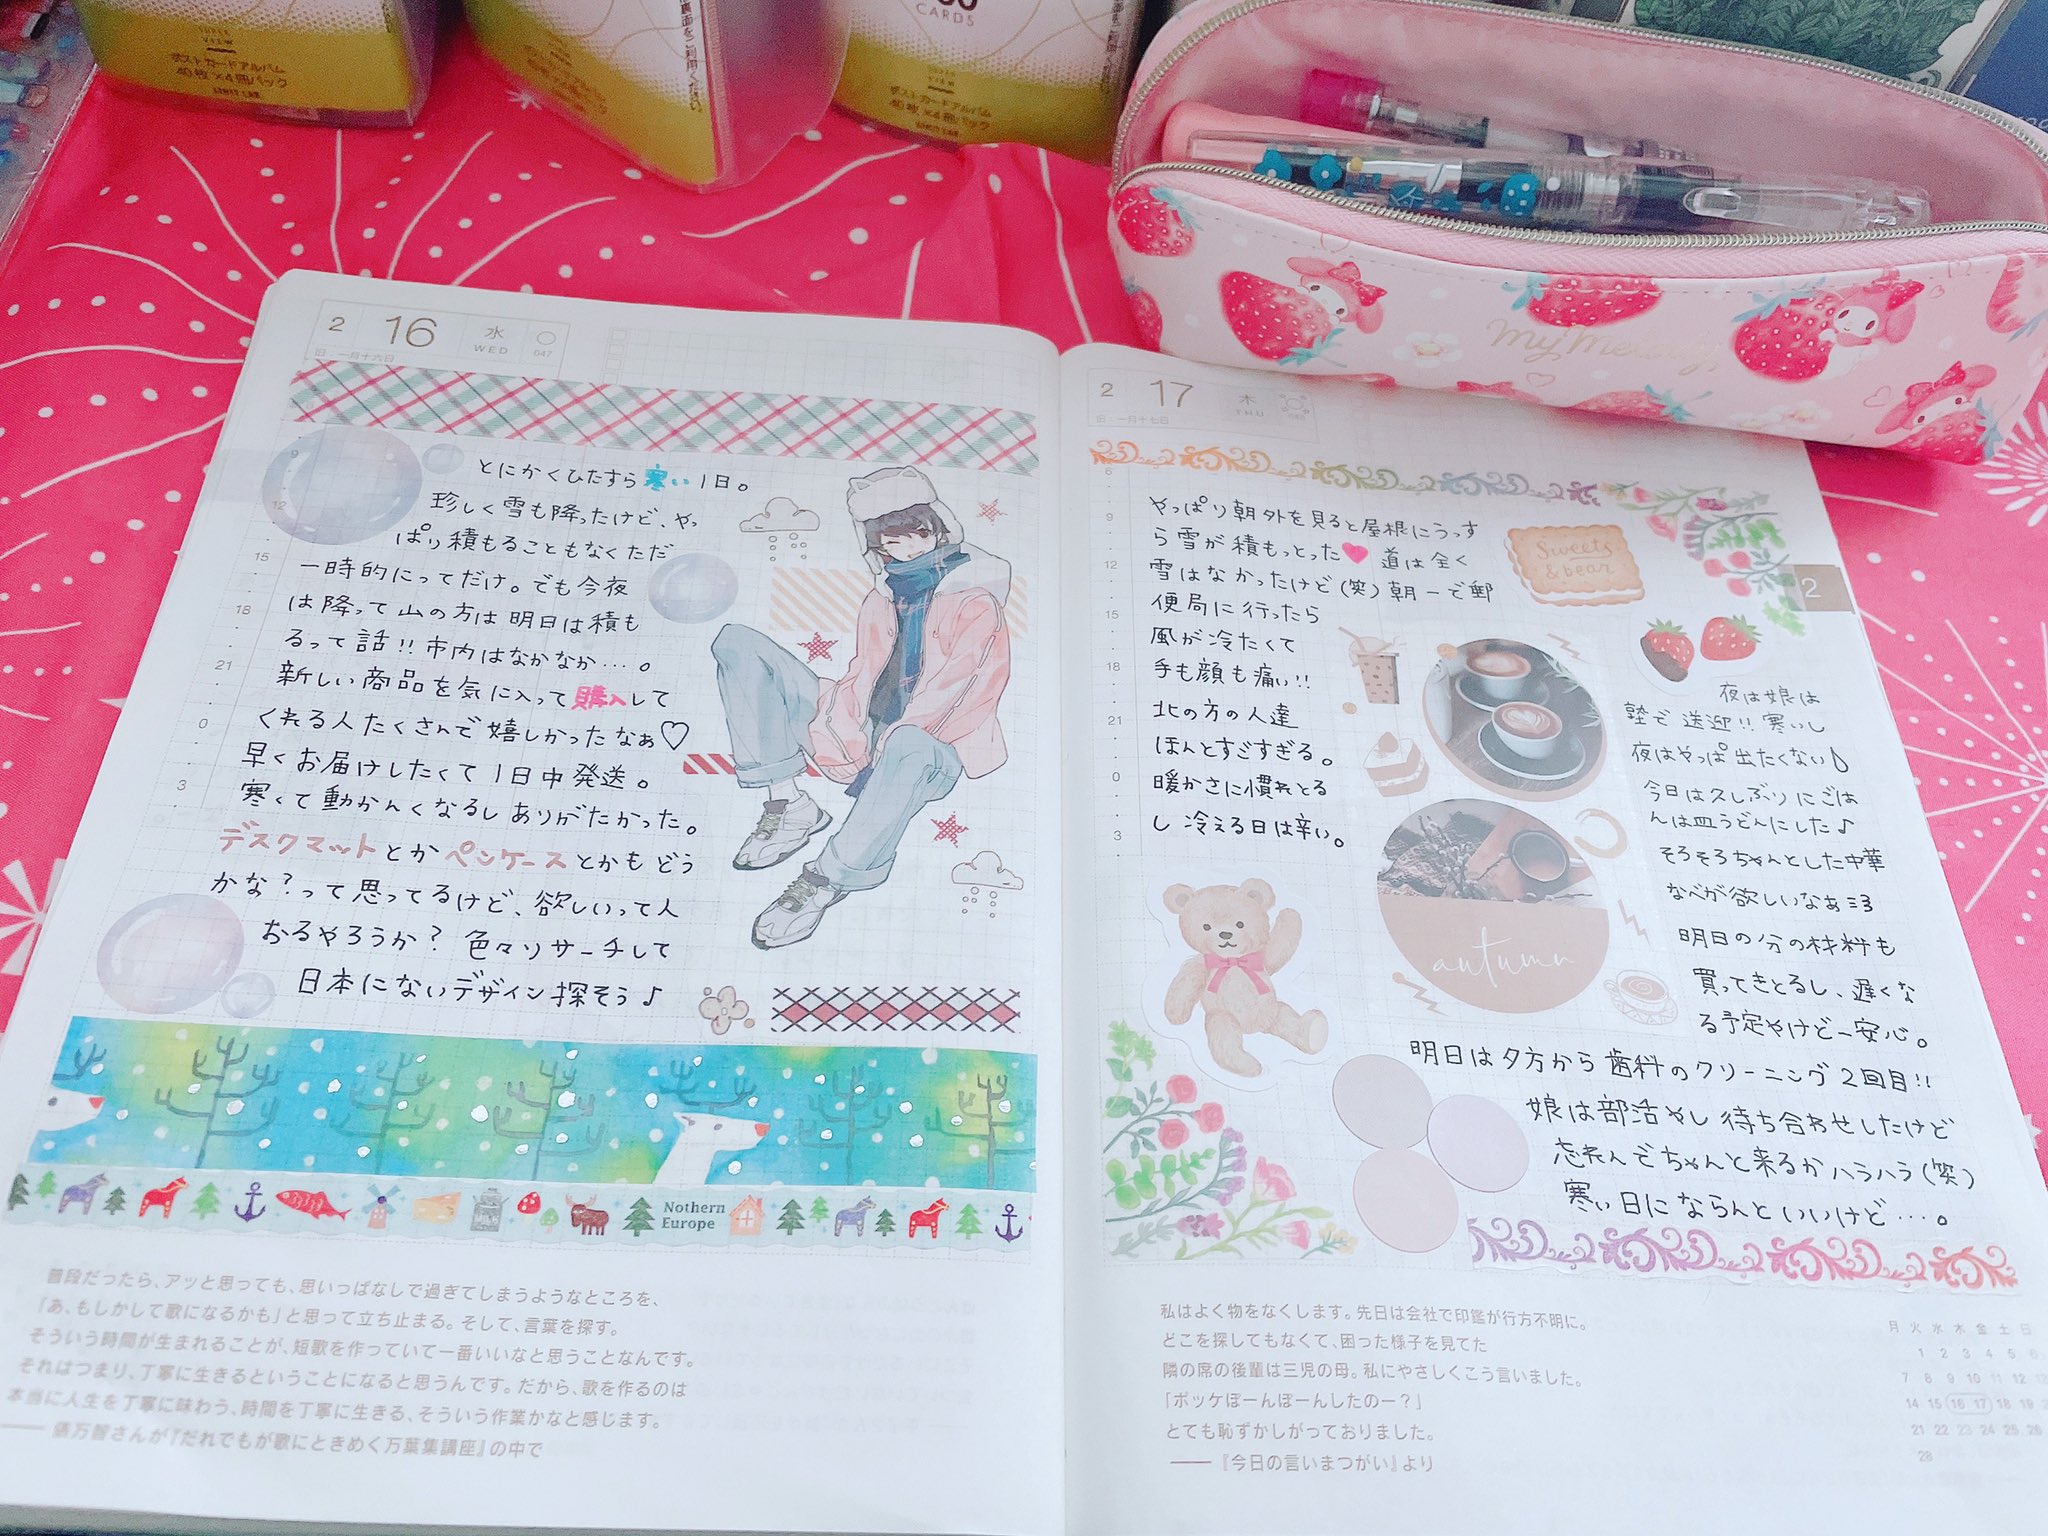 SUPER
VIEW
ポストカードアルバム
40枚×4冊パック
CARDS
ポストカードアルバム
40枚×4冊パック
My Melody
2 16 水
WED
047
旧:一月十六日
9
12
15
18
21
0
3
とにかくひたすら寒い1日。
珍しく雪も降ったけど、やっ
ぱり積もることもなくただ
一時的にってだけ。でも今夜
は降って山の方は明日は積も
るって話!!市内はなかなか…。
新しい商品を気に入って購入して
くれる人たくさんで嬉しかったなぁ♡
早くお届けしたくて1日中発送。
寒くて動かんくなるしありがたかった。
デスクマットとかペンケースとかもどう
かな?って思ってるけど、欲しいって人
おるやろうか? 色々リサーチして
日本にないデザイン探そう♪
Nothern
Europe
普段だったら、アッと思っても、思いっぱなしで過ぎてしまうようなところを、
「あ、もしかして歌になるかも」と思って立ち止まる。そして、言葉を探す。
そういう時間が生まれることが、短歌を作っていて一番いいなと思うことなんです。
それはつまり、丁寧に生きるということになると思うんです。だから、歌を作るのは
本当に人生を丁寧に味わう、時間を丁寧に生きる、そういう作業かなと感じます。
── 俵万智さんが『だれでもが歌にときめく万葉集講座』の中で
2 17 木
THU
旧:一月十七日
6
9
12
15
18
21
0
3
やっぱり朝外を見ると屋根にうっす
ら雪が積もっとった♥ 道は全く
雪はなかったけど(笑)朝一で郵
便局に行ったら
風が冷たくて
手も顔も痛い!!
北の方の人達
ほんとすごすぎる。
暖かさに慣れとる
し冷える日は辛い。
Sweets
& bear
autumn
2
夜は娘は
塾で送迎!!寒いし
夜はやっぱ出たくない
今日は久しぶりにごは
んは皿うどんにした♪
そろそろちゃんとした中華
なべが欲しいなぁ
明日の分の材料も
買ってきとるし、遅くな
る予定やけど一安心。
明日は夕方から歯科のクリーニング2回目!!
娘は部活やし待ち合わせしたけど
忘れんでちゃんと来るかハラハラ(笑)
寒い日にならんといいけど…。
私はよく物をなくします。先日は会社で印鑑が行方不明に。
どこを探してもなくて、困った様子を見てた
隣の席の後輩は三児の母。私にやさしくこう言いました。
「ポッケぽーんぽーんしたのー?」
とても恥ずかしがっておりました。
── 『今日の言いまつがい』より
月 火 水 木 金 土 日
1 2 3 4 5 6
7 8 9 10 11 12
14 15 16 17 18 19
21 22 23 24 25 26
28